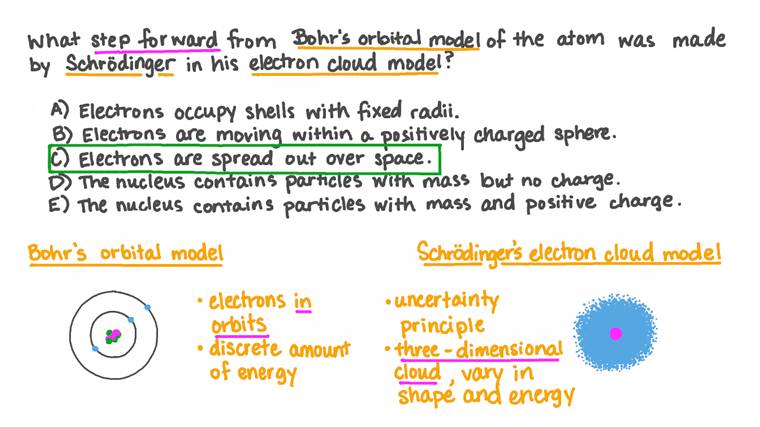 What step forward from Bohr's orbital model of the atom was made
by Schrödinger in his electron cloud model?
A) Electrons occupy shells with fixed radii.
B) Electrons are moving within a positively charged sphere.
C) Electrons are spread out over space.
D) The nucleus contains particles with mass but no charge.
E) The nucleus contains particles with mass and positive charge.
Bohr's orbital model
• electrons in
orbits
• discrete amount
of energy
Schrödinger's electron cloud model
• uncertainty
principle
• three-dimensional
cloud, vary in
shape and energy